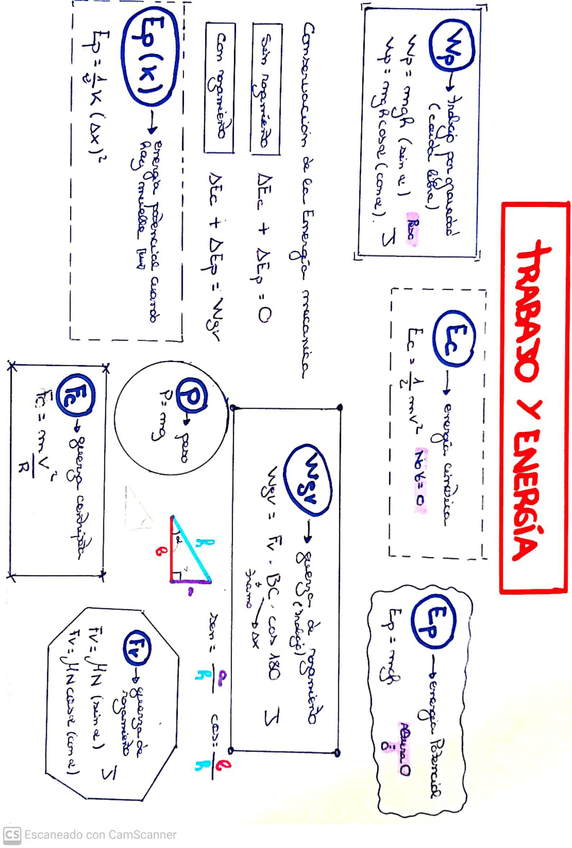 TRABAJO Y ENERGÍA
Wp → trabajo por gravedad
(caída libre)
Wp = mgh (sin α) Peso
Wp = mgh cos α (con α). J
Ec → energía cinética
Ec = 1/2 mv² No v=0
Ep → energía Potencial
Ep = mgh Altura 0
Conservación de la Energía mecánica
Sin rozamiento ΔEc + ΔEp = 0
Con rozamiento ΔEc + ΔEp = Wgv
Wgv → fuerza de rozamiento
(trabajo)
Wgv = Fv · BC · cos 180 J
tramo → Δx
Ep(k) → energía potencial cuando
hay muelle
Ep = 1/2 K (Δx)²
P → peso
P = mg
h
a
b
α
sen = a/h cos = b/h
Fc → fuerza centrípeta
Fc = m v²/R
Fv → fuerza de
rozamiento
Fv = μN (sin α) J
Fv = μN cos α (con α)
CS Escaneado con CamScanner